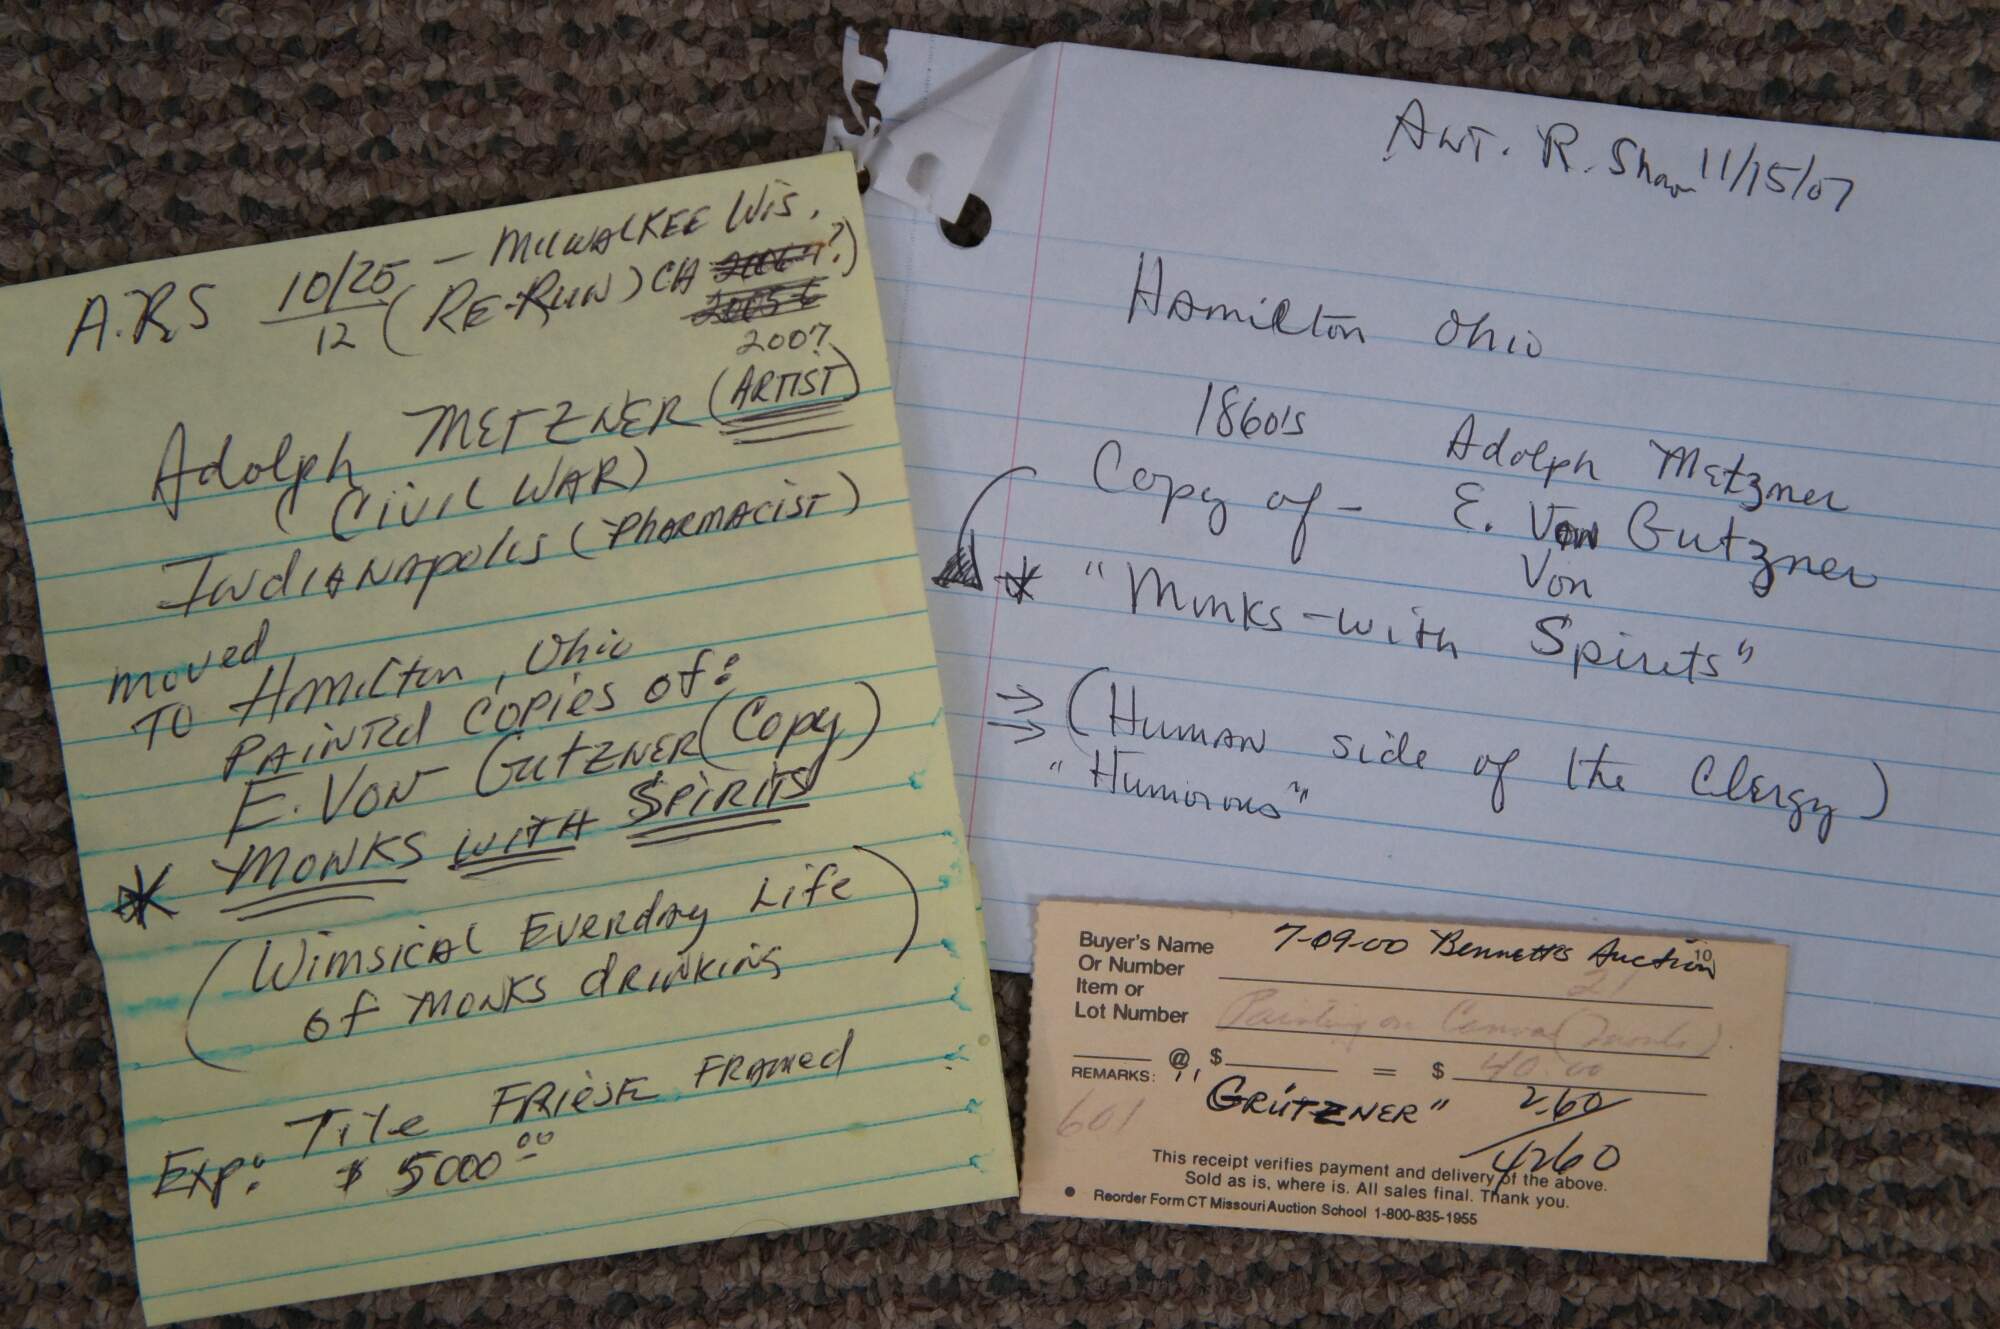 A.R.S 10/25 - MILWALKEE WIS.
12 (RE-RUN) CH ?)
2007
Adolph METZNER (ARTIST)
(CIVIL WAR)
INdIANApolis (PhARMAcisT)
moved
TO HAmilton, Ohio
PAINTEd COPIES of:
E. VON GUtZNER (Copy)
* MONKS WITH SPIRITS
(WimsicAL EVERDAy Life
of MONKS dRINKING)
TilE FRIESE FRAMED
Exp: $ 5000.00
ANT. R. Show 11/15/07
HAmilton Ohio
1860's Adolph Metzner
Copy of - E. Von Gutzner
Von
* "Monks-with Spirits"
→ (HUMAN side of the Clergy)
→ "Humorous"
Buyer's Name 7-09-00 Bennett's Auction 10
Or Number 21
Item or
Lot Number Painting on Canvas
@ $ = $ 40.00
REMARKS: "GRÜTZNER" 2.60
601 4260
This receipt verifies payment and delivery of the above.
Sold as is, where is. All sales final. Thank you.
Reorder Form CT Missouri Auction School 1-800-835-1955